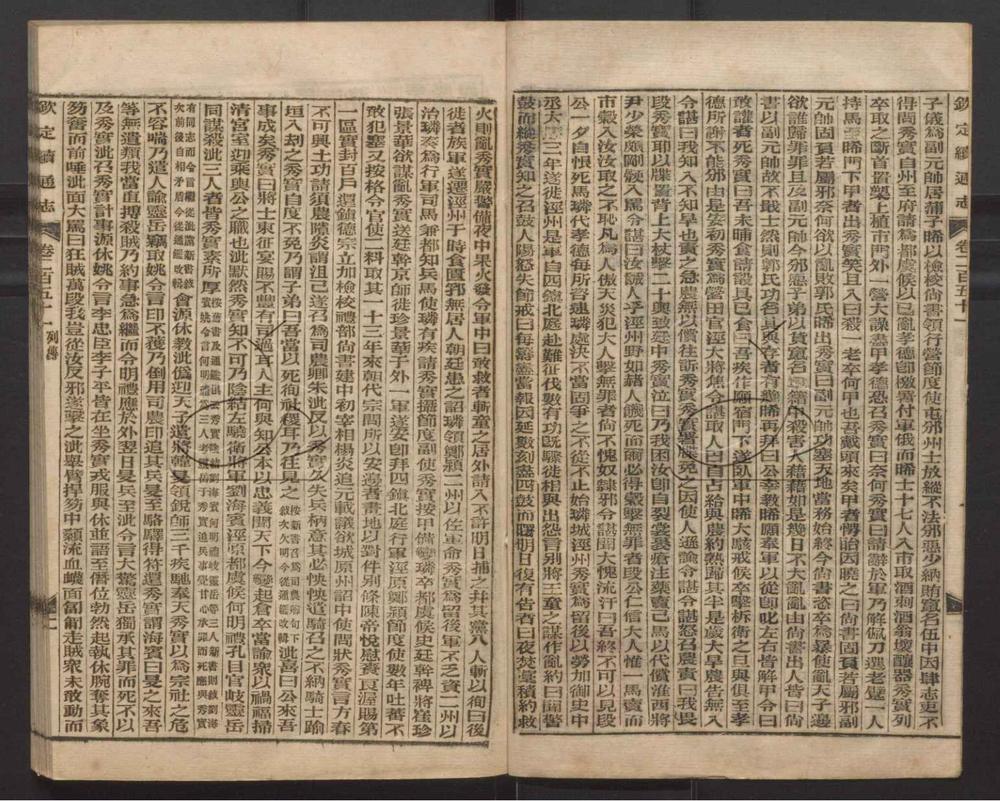 欽定續通志 卷二百五十一
子儀為副元帥居蒲子晞以檢校尚書領行營節度使屯邠州士放縱不法邠惡少納賄竄名伍中因肆志吏不
得問秀實自州至府請為都虞候以已亂孝德卽檄署付軍俄而晞士十七人入市取酒刺酒翁壞釀器秀實列
卒取之斷首置槊上植市門外一營大譟盡甲孝德恐召秀實曰奈何秀實曰請辭於軍乃解佩刀選老躄一人
持馬至晞門下甲者出秀實笑且入曰殺一老卒何甲也吾戴頭來矣甲者愕眙因曉之曰尚書固負若屬邪副
元帥固負若屬邪奈何欲以亂敗郭氏晞出秀實曰副元帥功塞天地當務始終今尚書恣卒為暴使亂天子邊
欲誰歸罪罪且及副元帥今邠惡子弟以貨竄名軍籍中殺害人藉藉如是幾日不大亂亂由尚書出人皆曰尚
書以副元帥故不戢士然則郭氏功名其與存者有幾晞再拜曰公幸教晞願奉軍以從卽叱左右皆解甲令曰
敢讙者死秀實曰吾未晡食請設具已食曰吾疾作願宿門下遂臥軍中晞大駭戒候卒擊柝衛之旦與俱至孝
德所謝不能邠由是安初秀實為營田官涇大將焦令諶取人田自占給與農約熟歸其半是歲大旱農告無入
令諶曰我知入不知旱也責之急農無以償往訴秀實秀實署牒免之因使人遜諭令諶令諶怒召農責曰我畏
段秀實耶以牒置背上大杖擊二十輿致廷中秀實泣曰乃我困汝卽自裂裳裹瘡注藥賣己馬以代償淮西將
尹少榮頗剛鯁入罵令諶曰汝誠人乎涇州野如赭人饑死而爾必得穀擊無罪者段公仁信大人惟一馬賣而
市穀入汝汝取之不恥凡為人傲天災犯大人擊無罪者尚不愧奴隷邪令諶聞大愧流汗曰吾終不可以見段
公一夕自恨死馬璘代孝德每所咨逮璘處決不當固爭之不從不止始璘城涇州秀實為留後以勞加御史中
丞大厯三年遂徙涇州是軍自四鎮北庭赴難征伐數有功旣驟徙相與出怨言別將王童之謀作亂約曰聞警
鼓而縱秀實知之召鼓人陽怒失節戒曰每籌盡當報因延數刻盡四鼓而曙明日復有告者曰夜焚藁積約救
火則亂秀實嚴警備夜中果火發令軍中曰敢救者斬童之居外請入不許明日捕之幷其黨八人斬以徇曰後
徙者族軍遂遷涇州于時食匱邠無居人朝廷患之詔璘領鄭潁二州以佐軍命秀實為留後軍不乏資二州以
治璘奏為行軍司馬兼都知兵馬使璘有疾請秀實攝節度副使秀實按甲備變璘卒都虞候史廷幹裨將崔珍
張景華欲謀亂秀實送廷幹京師徙珍景華于外一軍遂安卽拜四鎮北庭行軍涇原鄭潁節度使數年吐蕃不
敢犯塞又按格令官使二料取其一十三年來朝代宗問所以安邊者書地以對件別條陳帝悅慰賚良渥賜第
一區實封百戶還鎮德宗立加檢校禮部尚書建中初宰相楊炎追元載議欲城原州詔中使問狀秀實言方春
不可興土功請須農隙炎謂沮己遂召為司農卿朱泚反以秀實久失兵柄意其必怏怏遣騎召之不納騎士踰
垣入劫之秀實自度不免乃謂子弟曰吾當以死徇社稷耳乃往見之泚喜曰公來吾
事成矣秀實曰將士東征宴賜不豐有司過耳人主何與知公本以忠義聞天下今變起倉卒當諭眾以禍福掃
清宮室迎乘輿公之職也泚默然秀實知不可乃陰結左驍衛將軍劉海賓涇原都虞候何明禮孔目官岐靈岳
同謀殺泚三人者皆秀實素所厚
會源休教泚偽迎天子遣將韓旻領銳師三千疾馳奉天秀實以為宗社之危
不容喘乃遣人諭靈岳竊取姚令言印不獲乃倒用司農印追其兵旻至駱驛得符還秀實謂海賓曰旻之來吾
等無遺類我當直搏殺賊乃約事急為繼而令明禮應於外翌日旻兵至泚令言大驚靈岳獨承其罪而死不以
及秀實泚召秀實計事源休姚令言李忠臣李子平皆在坐秀實戎服與休並語至僭位勃然起執休腕奪其象
笏奮而前唾泚面大罵曰狂賊萬段我豈從汝反邪遂擊之泚舉臂捍笏中顙流血衊面匍匐走賊眾未敢動而
欽定續通志 卷二百五十一 列傳 二